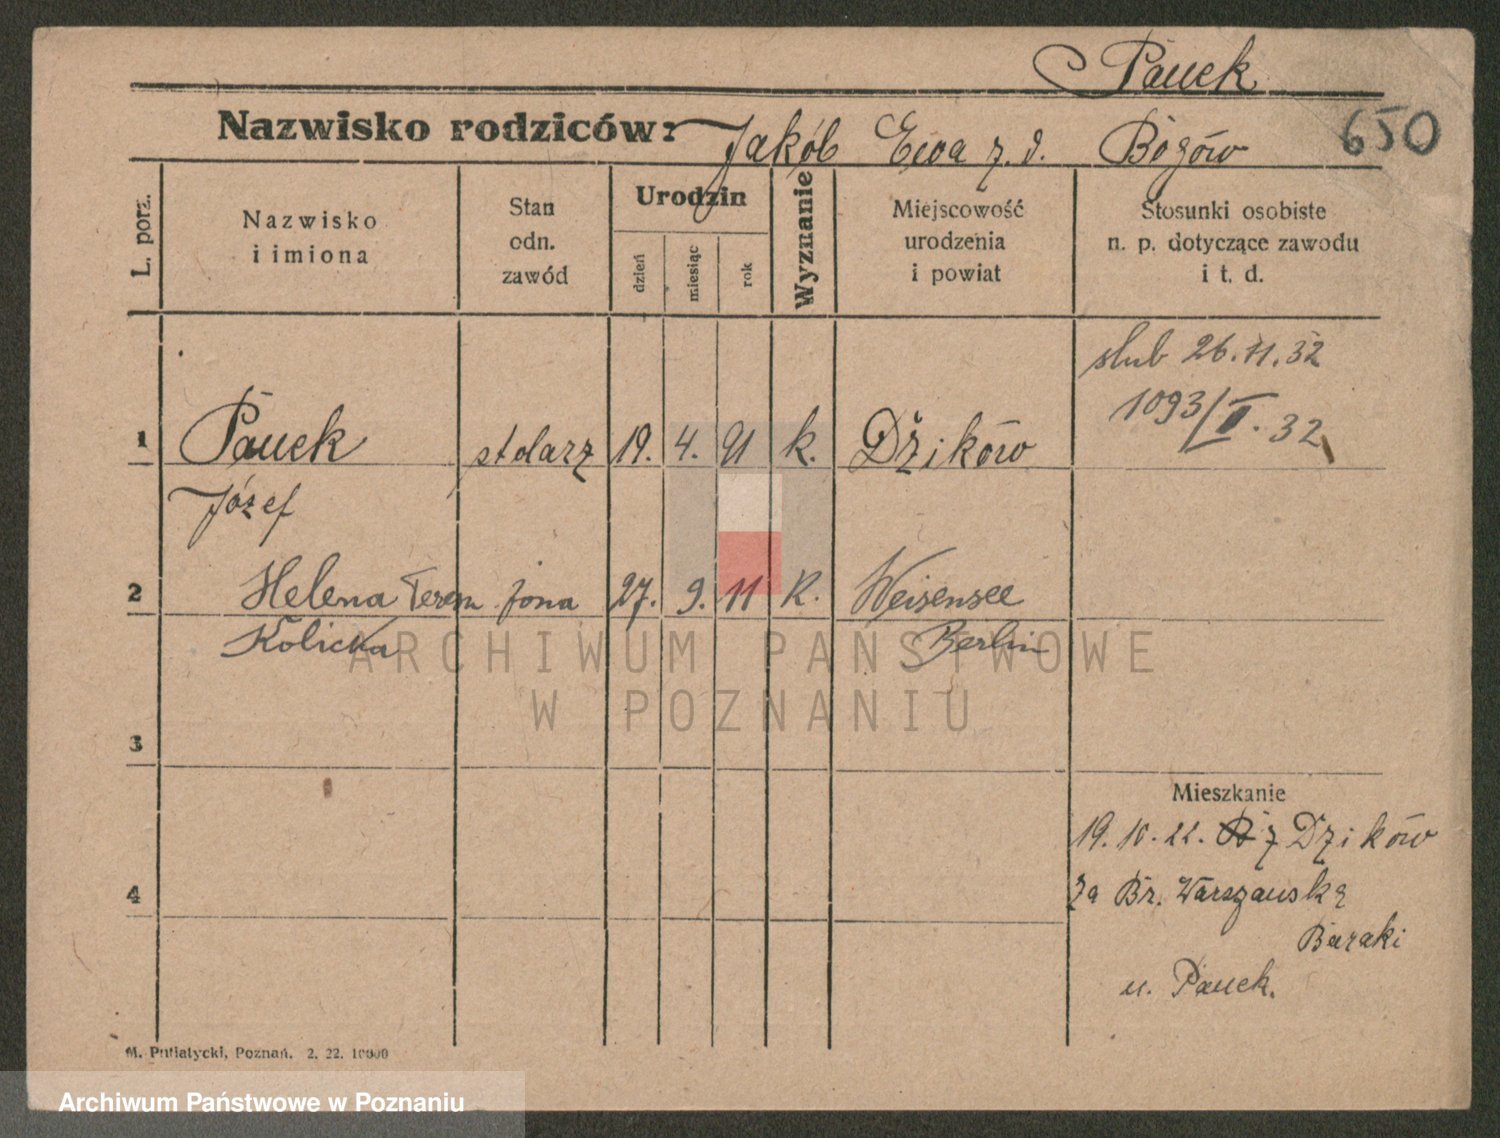 Pauek
650
Nazwisko rodziców: Jakób Ewa z. d. Bogów
L. porz.
Nazwisko i imiona
Stan odn. zawód
Urodzin
dzień miesiąc rok
Wyznanie
Miejscowość urodzenia i powiat
Stosunki osobiste n. p. dotyczące zawodu i t. d.
ślub 26.11.32
1093/II.32
1 Pauek stolarz 19. 4. 91 k. Dzików
Józef
2 Helena Teresa żona 27. 9. 11 K. Weisensee
Kolicka Berlin
3
4
Mieszkanie
19. 10. 22. z Dzików
za Br. Warszawską
Baraki
u. Pauek.
M. Putiatycki, Poznań. 2. 22. 10000
ARCHIWUM PAŃSTWOWE
W POZNANIU
Archiwum Państwowe w Poznaniu